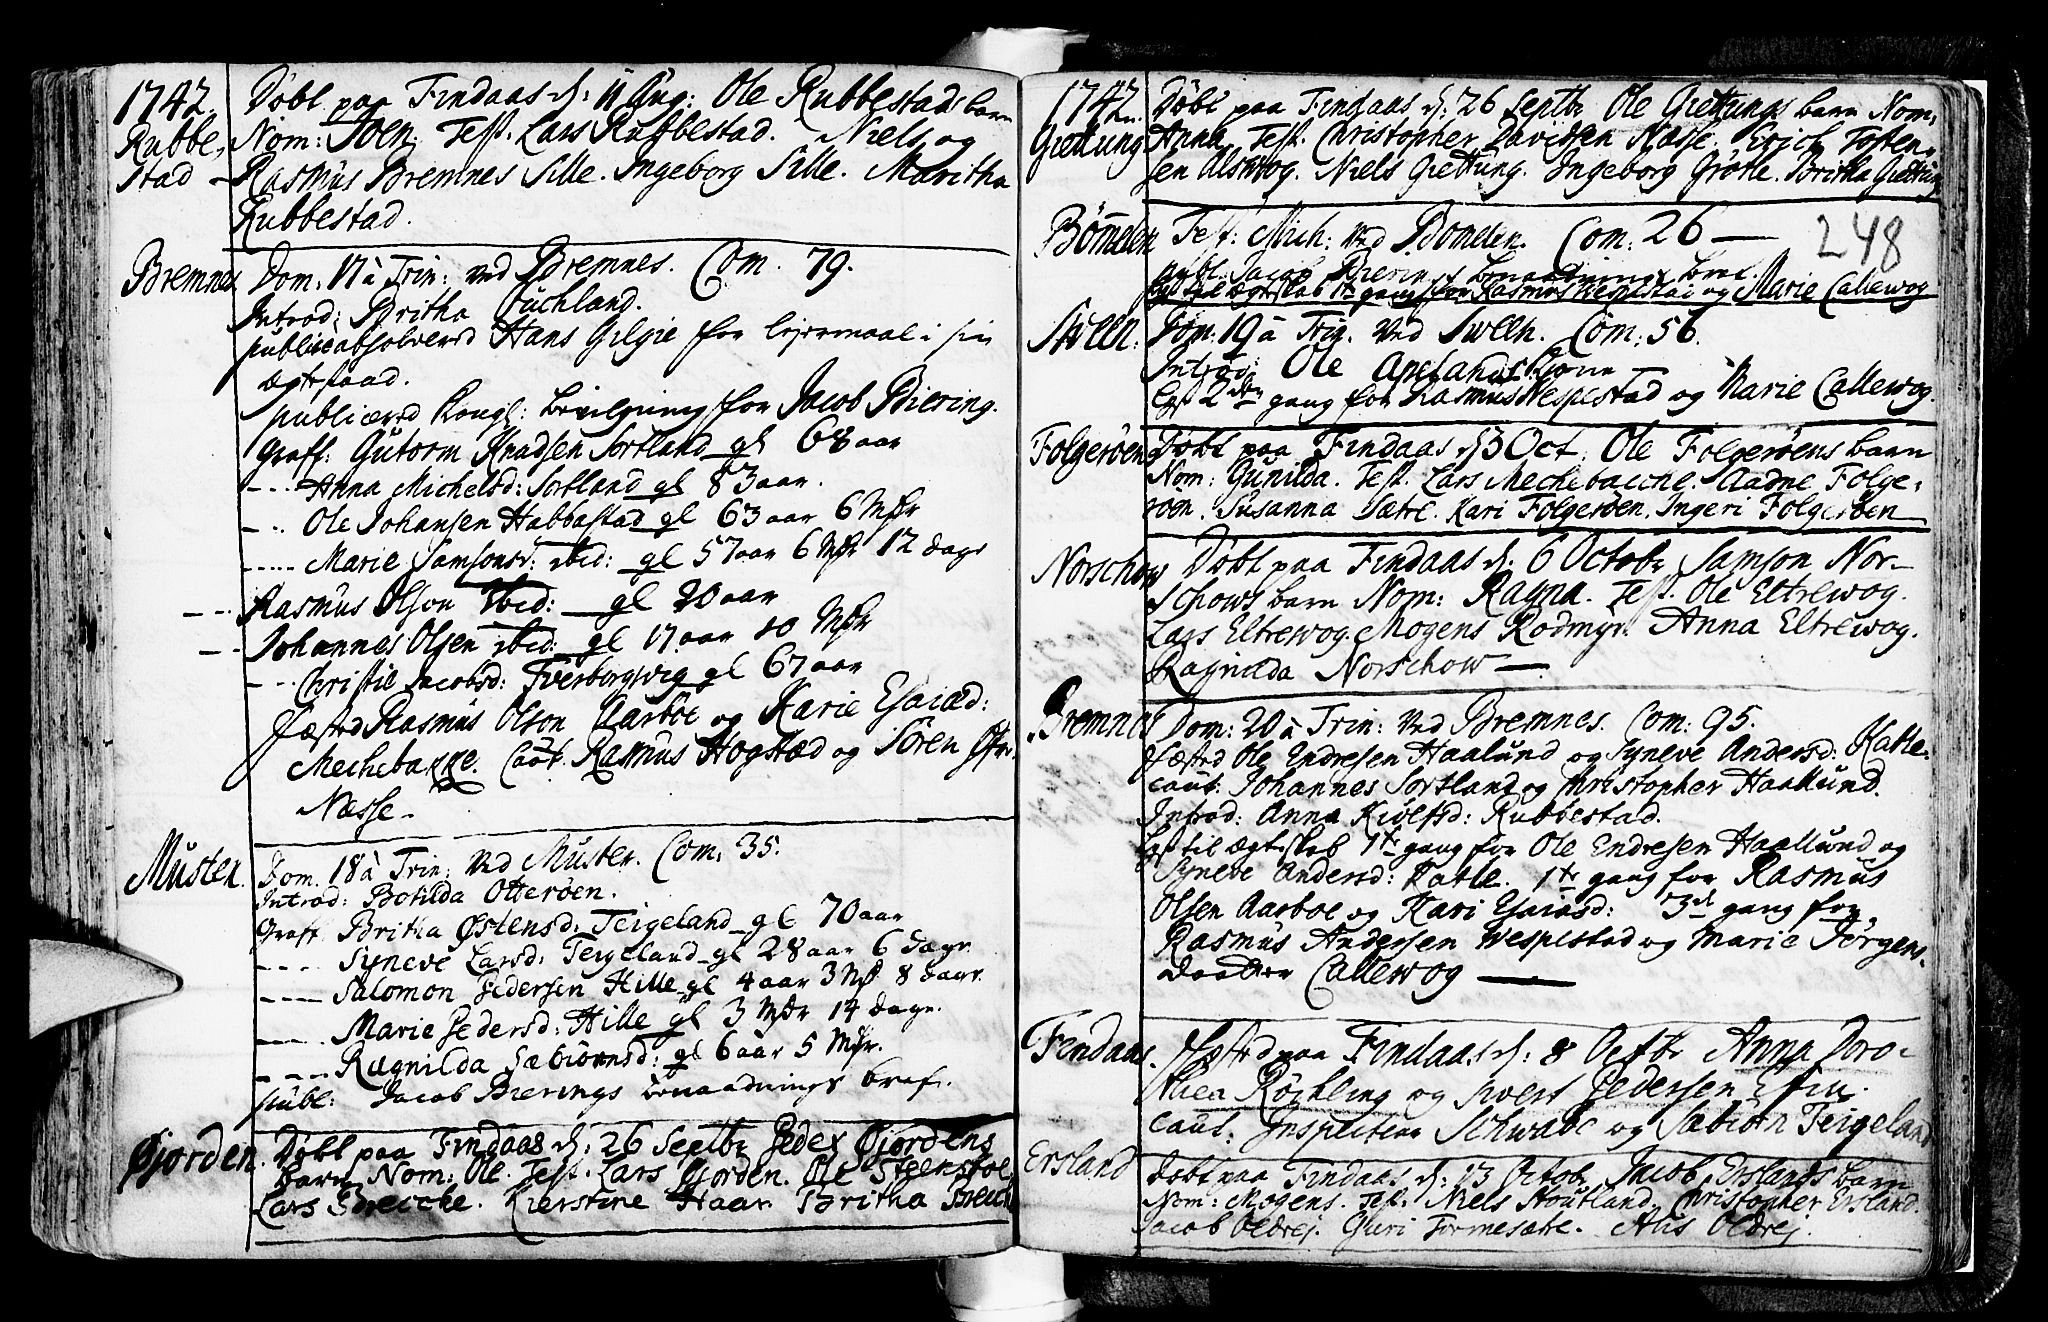 1742.
Rubbe-
stad
Døbt paa Findaas d: 11 Aug: Ole Rubbestads barn
Nom: Joen. Test. Lars Rubbestad. Niels og
Rasmus Bremnes Sille. Ingeborg Sille. Maritha
Rubbestad.
Bremnes
Dom: 17 à Trin: ved Bremnes. Com. 79.
Introd: Britha
publice absolvered Hans Gilgie for lejermaal i sin
ægtestand.
publicered Kongl: bevilgning for Jacob Biering.
Graff: Gutorm Knudsen Sortland gl 68 aar
---- Anna Michelsd: Sortland gl 83 aar.
--- Ole Johansen Habbastad gl 63 aar 6 Mdr
----- Marie Samsonsd: ibid: gl 57 aar 6 Mdr 12 dage
-- Rasmus Olson ibid: gl 20 aar
-- Johannes Olsen ibid: gl 17 aar 10 Mdr
--- Christie Jacobsd: gl 67 aar
fæsted Rasmus Olson Aarboe og Karie Esaiæd:
Mechebakke. Caut. Rasmus Hogstad og Sören
Næsse.
Muster.
Dom. 18 à Trin: ved Muster. Com. 35.
Introd: Botilda Otterøen.
Graff Britha Østensd: Teigeland gl 70 aar
---- Syneve Larsd: Teigeland gl 28 aar 6 dage
---- Salomon Pedersen Hille gl 4 aar 3 Md 8 dage
---- Marie Pedersd: Hille gl 3 Mdr 14 dage.
---- Ragnilda Sæbiörnsd: gl 6 aar 5 Mdr.
publ: Jacob Bierings benaadnings bref.
Øjorden.
Døbt paa Findaas d: 26 Septbr Peder Øjordens
barn Nom: Ole. Test. Lars Øjorden. Ole Steenstoe
Lars Breicke. Kierstine Haar. Britha
1742.
Giettung
Døbt paa Findaas d: 26 Septbr Ole Giettungs barn Nom:
Anna Test. Christopher Davidsen Næsse. Erich Tosten-
sen Alswog. Niels Giettung. Ingeborg Grøtle. Britha Giettung
Bömelen
Fest: Mich: ved Bömelen. Com: 26 —
248
publ: Jacob Bierings benaadnings bref.
lyst til ægteskab 1te gang for Rasmus Wespestad og Marie Callewog
Sween.
Dom: 19 à Trin. ved Sween. Com: 56.
Introd: Ole Apelands Kone
lyst 2den gang for Rasmus Wespestad og Marie Callewog.
Folgerøen
Døbt paa Findaas d 3 Oct. Ole Folgerøens barn
Nom: Gunilda. Test. Lars Mechebacche. Aadne Folge-
röen. Susanna Sætre. Kari Folgerøen. Ingeri Folgerøen
Norschow
Døbt paa Findaas d: 6 Octobr Samson Nor-
schows barn Nom: Ragna. Test. Ole Eltrewog.
Lars Eltrewog. Mogens Rodmyr. Anna Eltrewog.
Ragnilda Norschow —
Bremnes
Dom: 20 à Trin: ved Bremnes. Com: 95.
fæsted Ole Endresen Haalund og Syneve Andersd: Katle.
caut: Johannes Sortland og Christopher Haallund.
Introd: Anna Kiölfsd: Rubbestad.
lyst til ægteskab 1te gang for Ole Endresen Haallund og
Syneve Andersd: Katle. 1te gang for Rasmus
Olsen Aarboe og Kari Esaiasd: 3die gang for
Rasmus Andersen Wespestad og Marie Jörgens-
daatter Callewog —
Findaas.
fæsted paa Findaas d: 8 Octbr Anna Doro-
thea Röchling og Siwert Pedersen
caut. Inspecteur Schwabe og Sæbiörn Teigeland
Ersland
Døbt paa Findaas d: 13 Octobr Jacob Erslands barn
Nom: Mogens. Test: Niels Houtland. Christopher Ersland.
Jacob Oldrej. Guri Tormesætre. Alis Oldrej.